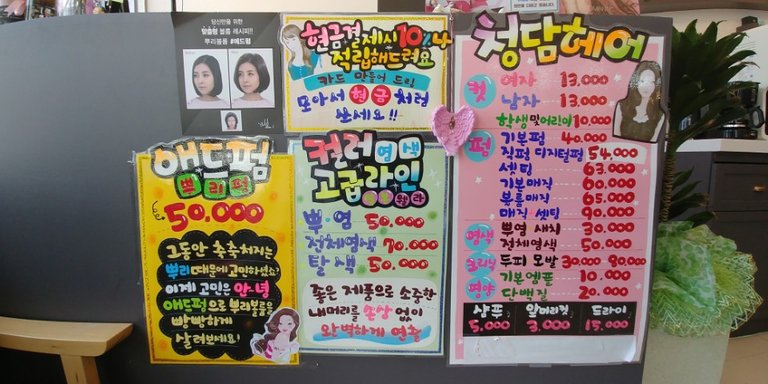 당신만을 위한
맞춤형 볼륨 레시피!!
뿌리볼륨 #애드펌
현금결제시 10%
적립해드려요
카드 만들어 드림
모아서 현금처럼
쓰세요!!
청담헤어
컷
여자 13,000
남자 13,000
학생및어린이 10,000
펌
기본펌 40.000
직펌 디지털펌 54.000
셋팅 63.000
기본매직 60.000
볼륨매직 65.000
매직 셋팅 90.000
염색
뿌염 새치 30.000
전체염색 50.000
크리닉
두피 모발 30.000 80.000
영양
기본앰플 10.000
단백질 20.000
샴푸 5.000
앞머리컷 3.000
드라이 15.000
애드펌
뿌리펌
50.000
그동안 축축처지는
뿌리때문에 고민하셨죠?
이제 고민은 안녕
애드펌으로 뿌리볼륨을
빵빵하게
살려보세요!
컬러염색
고급라인
뿌·염 50.000
전체염색 70.000
탈색 50.000
좋은 제품으로 소중한
내머리를 손상 없이
완벽하게 연출